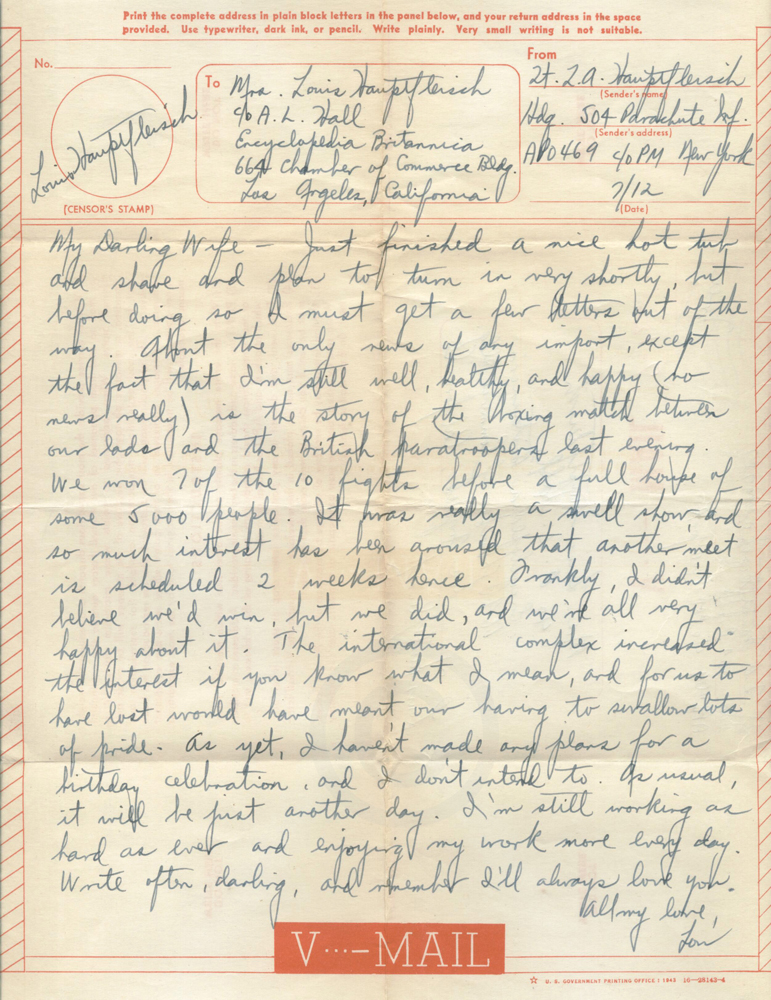 Print the complete address in plain block letters in the panel below, and your return address in the space
provided. Use typewriter, dark ink, or pencil. Write plainly. Very small writing is not suitable.
No.
Louis Hauptfleisch
(CENSOR'S STAMP)
To Mrs. Louis Hauptfleisch
c/o A. L. Hall
Encyclopedia Britannica
664 Chamber of Commerce Bldg.
Los Angeles, California
From
Lt. L.A. Hauptfleisch
(Sender's name)
Hdq. 504 Parachute Inf.
(Sender's address)
APO 469 c/o PM New York
7/12
(Date)
My Darling Wife – Just finished a nice hot tub
and shave and plan to turn in very shortly, but
before doing so I must get a few letters out of the
way. About the only news of any import, except
the fact that I'm still well, healthy, and happy (no
news really) is the story of the boxing match between
our lads and the British paratroopers last evening.
We won 7 of the 10 fights before a full house of
some 5000 people. It was really a swell show, and
so much interest has been aroused that another meet
is scheduled 2 weeks hence. Frankly, I didn't
believe we'd win, but we did, and we're all very
happy about it. The international complex increased
the interest if you know what I mean, and for us to
have lost would have meant our having to swallow lots
of pride. As yet, I haven't made any plans for a
birthday celebration, and I don't intend to. As usual,
it will be just another day. I'm still working as
hard as ever and enjoying my work more every day.
Write often, darling, and remember I'll always love you.
All my love,
Lou
V···–MAIL
☆ U. S. GOVERNMENT PRINTING OFFICE : 1943 16—28143-4